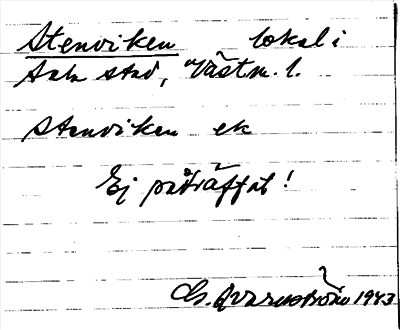 Stenviken lokal i
Sala stad, Västm. l.
Stenviken ek
Ej påträffat!
G. Qvarnström 1943